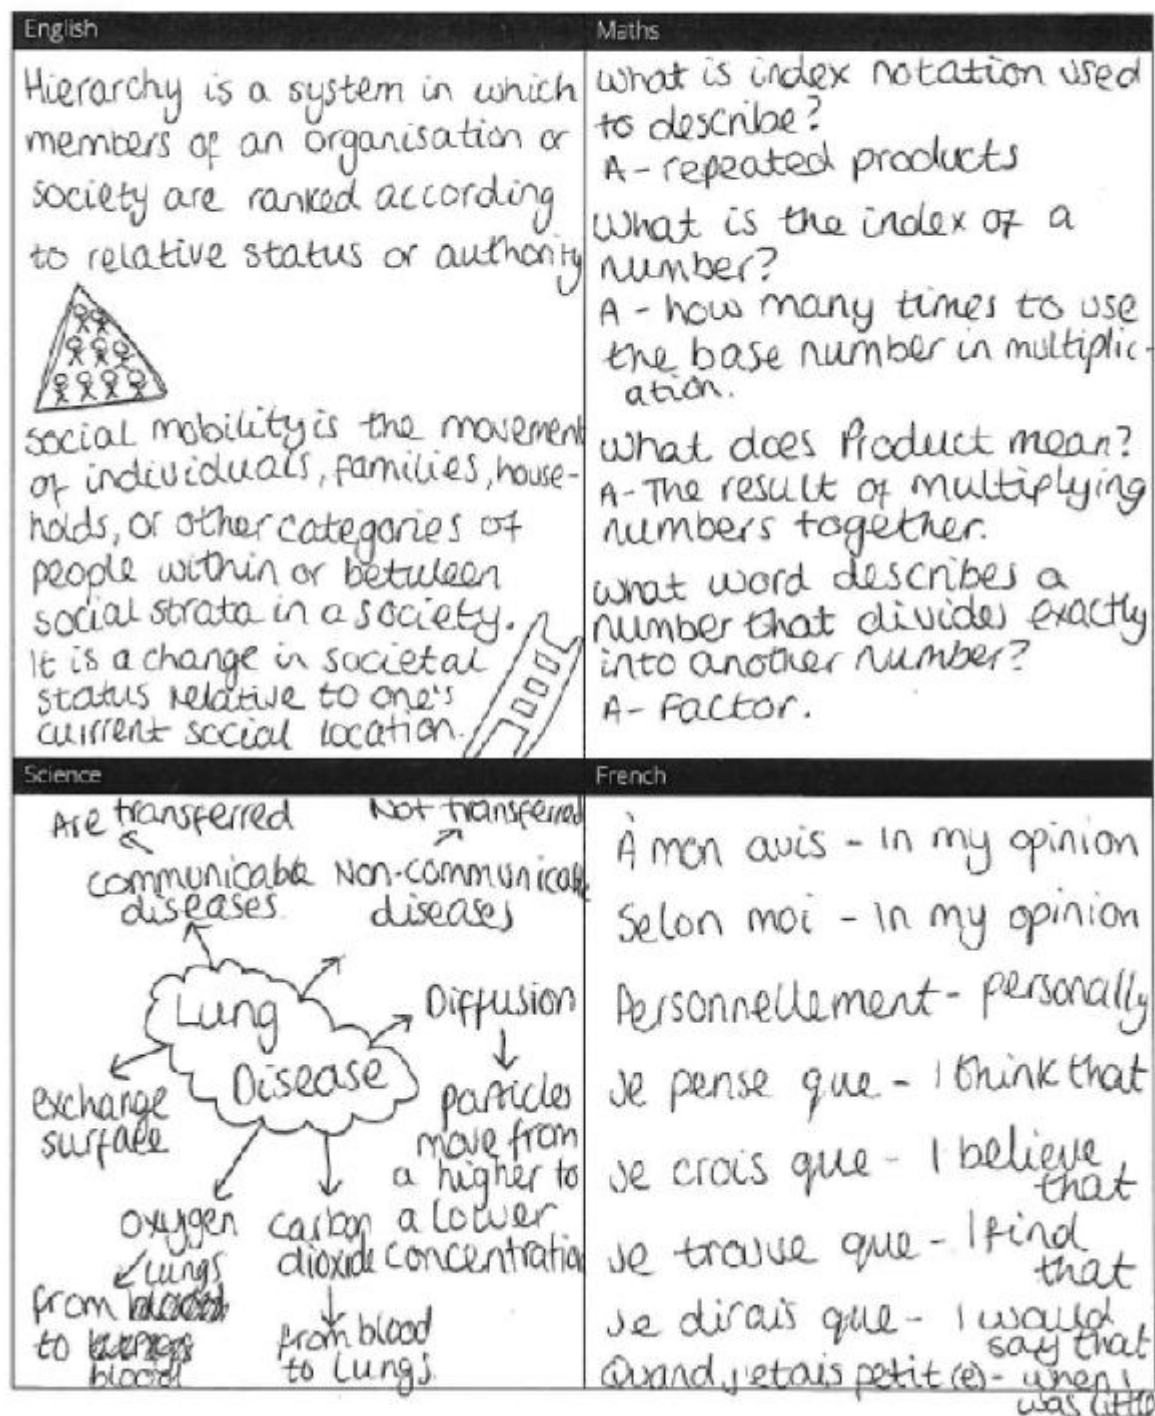 English
Hierarchy is a system in which
members of an organisation or
society are ranked according
to relative status or authority
social mobility is the movement
of individuals, families, house-
holds, or other categories of
people within or between
social strata in a society.
It is a change in societal
status relative to one's
current social location.
Maths
what is index notation used
to describe?
A - repeated products
What is the index of a
number?
A - how many times to use
the base number in multiplic-
ation.
What does Product mean?
A - The result of multiplying
numbers together.
what word describes a
number that divides exactly
into another number?
A - Factor.
Science
Are transferred
communicable
diseases
Not transferred
Non-communicable
diseases
Lung
Disease
Diffusion
particles
move from
a higher to
a lower
concentration
exchange
surface
oxygen
lungs
from blood
to lungs
blood
carbon
dioxide
from blood
to Lungs
French
À mon avis - In my opinion
Selon moi - In my opinion
Personnellement - personally
Je pense que - I think that
Je crois que - I believe
that
Je trouve que - I find
that
Je dirais que - I would
say that
Quand j'etais petit(e) - when I
was little